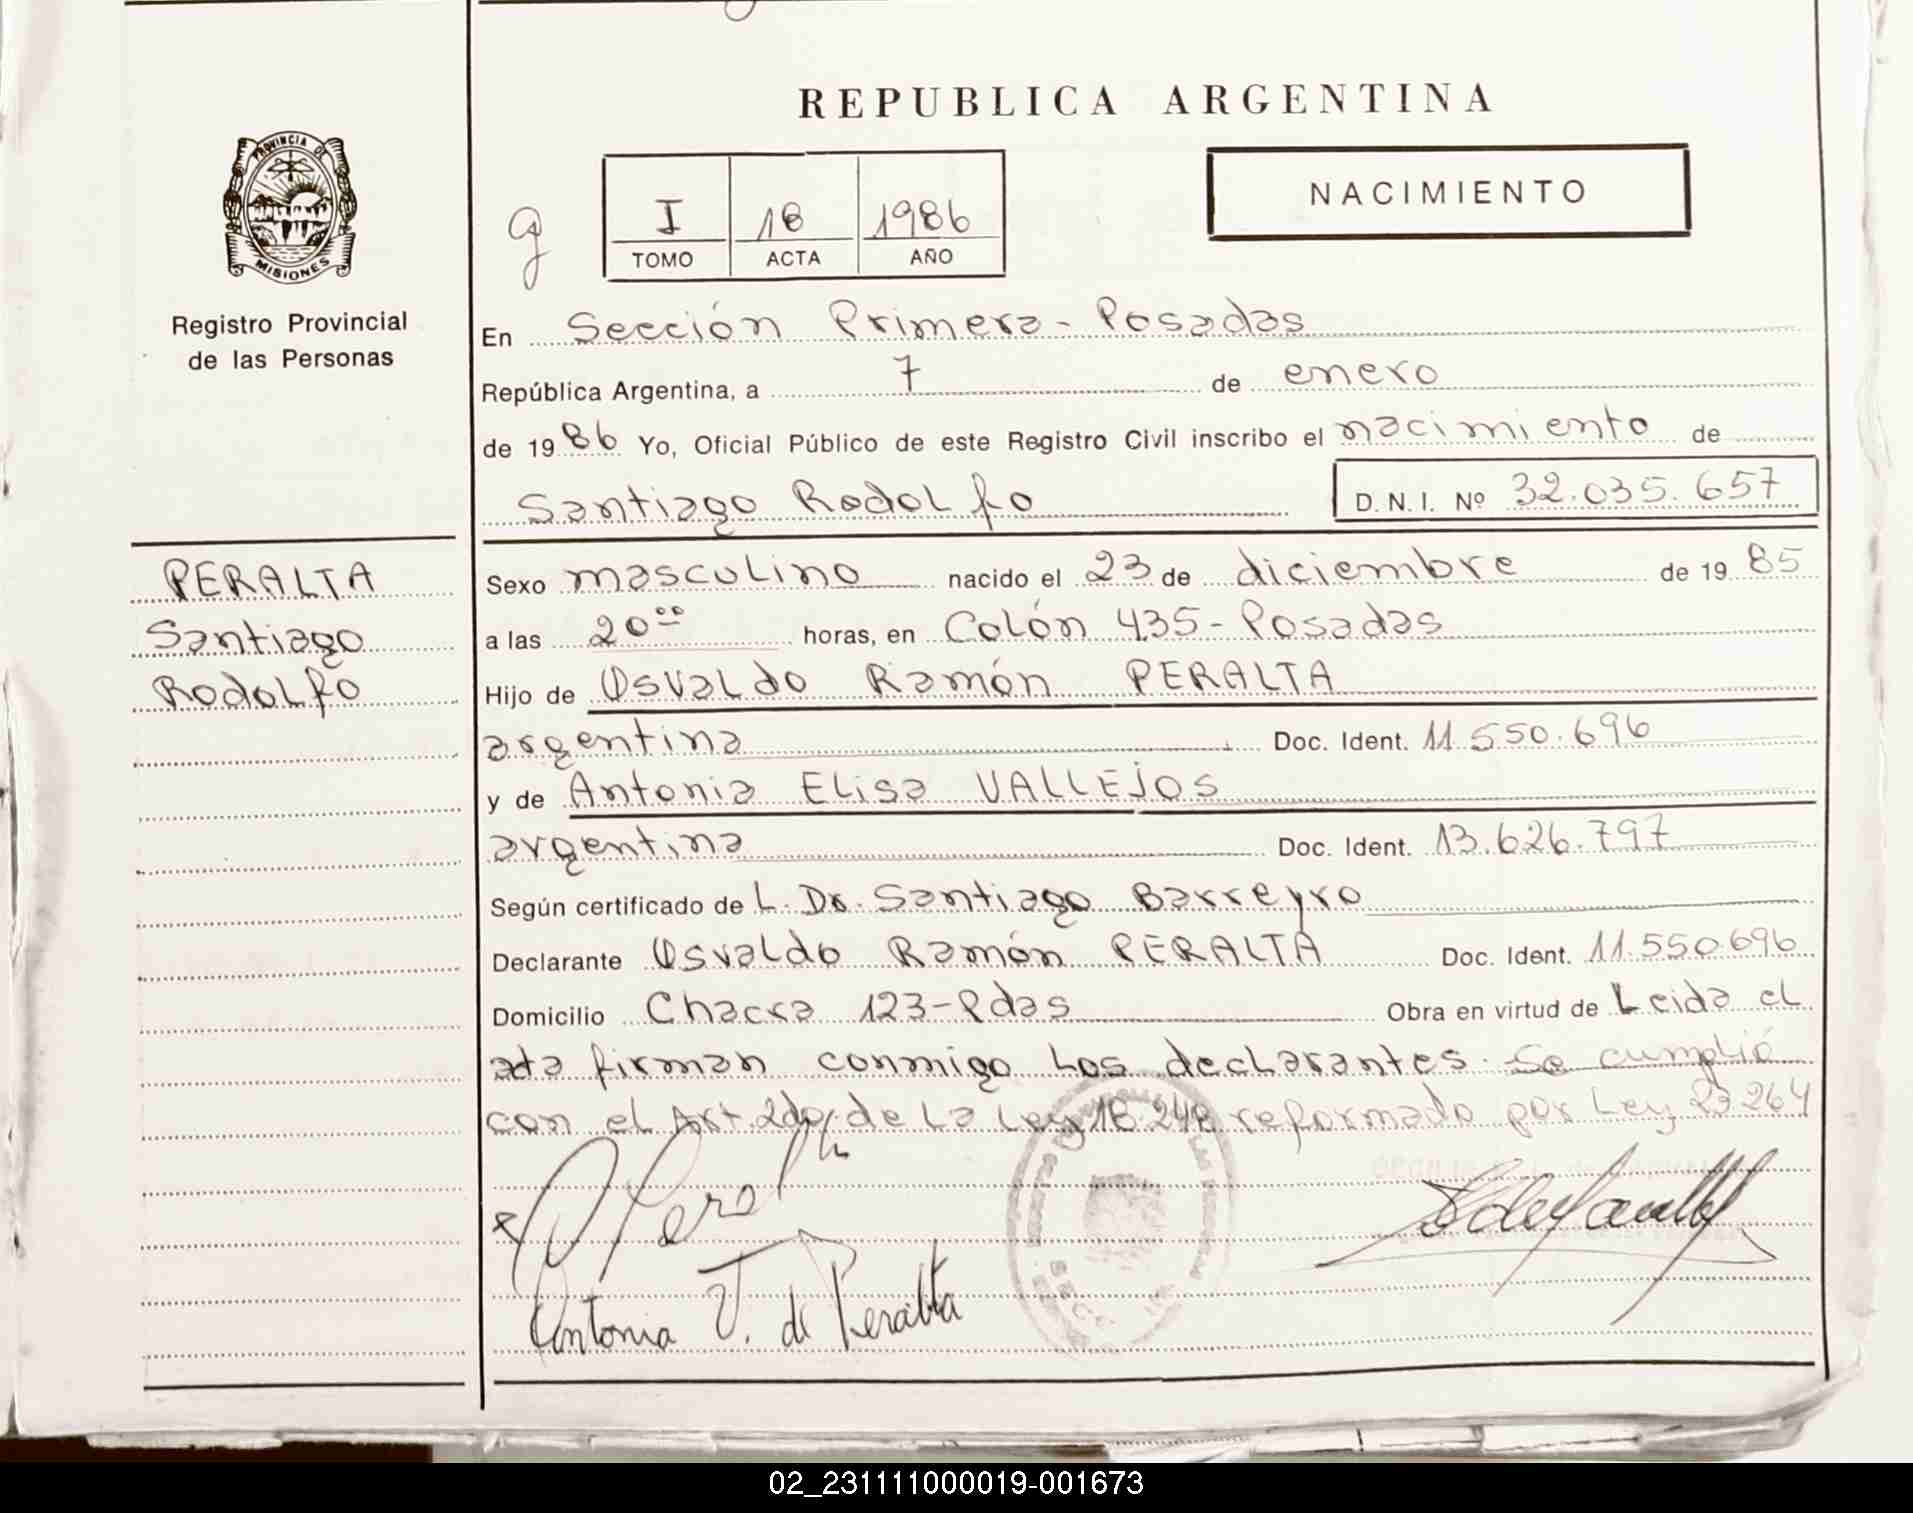 REPUBLICA ARGENTINA
PROVINCIA DE
MISIONES
Registro Provincial
de las Personas
g
I 18 1986
TOMO ACTA AÑO
NACIMIENTO
En Sección Primera - Posadas
República Argentina, a 7 de enero
de 1986 Yo, Oficial Público de este Registro Civil inscribo el nacimiento de
Santiago Rodolfo D. N. I. Nº 32.035.657
PERALTA
Santiago
Rodolfo
Sexo masculino nacido el 23 de diciembre de 1985
a las 20⁰⁰ horas, en Colón 435 - Posadas
Hijo de Osvaldo Ramón PERALTA
argentina Doc. Ident. 11.550.696
y de Antonia Elisa VALLEJOS
argentina Doc. Ident. 13.626.797
Según certificado de L. Dr. Santiago Barreyro
Declarante Osvaldo Ramón PERALTA Doc. Ident. 11.550.696
Domicilio Chacra 123 - Pdas Obra en virtud de Leida el
acta firman conmigo los declarantes. Se cumplió
con el Art. 2do. de la Ley 18.248 reformado por Ley 23264
Antonia V. de Peralta
02_231111000019-001673